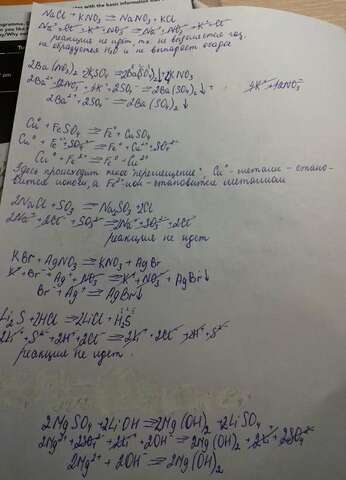 with the basic information that
NaCl + KNO₃ ⇄ NaNO₃ + KCl
Na⁺ + Cl⁻ + K⁺ + NO₃⁻ ⇄ Na⁺ + NO₃⁻ + K⁺ + Cl⁻
реакция не идет, т.к. не выделяется газ,
не образуется H₂O и не выпадает осадок
2Ba(NO₃)₂ + K₂SO₄ ⇄ 2Ba(SO₄)₂↓ + KNO₃
2Ba²⁺ + NO₃⁻ + K⁺ + 2SO₄⁻ ⇄ 2Ba(SO₄)₂↓ + K⁺ + NO₃⁻
2Ba²⁺ + 2SO₄⁻ ⇄ 2Ba(SO₄)₂↓
Cu⁰ + FeSO₄ ⇄ Fe⁰ + CuSO₄
Cu⁰ + Fe²⁺ + SO₄²⁻ ⇄ Fe⁰ + Cu²⁺ + SO₄²⁻
Cu⁰ + Fe²⁺ ⇄ Fe⁰ + Cu²⁺
Здесь происходит перемещение: Cu⁰ - металл - стано-
вится ионом, а Fe²⁺ ион - становится металлом
2NaCl + SO₃ ⇄ Na₂SO₃ + 2Cl
2Na⁺ + 2Cl⁻ + SO₃²⁻ ⇄ 2Na⁺ + SO₃²⁻ + 2Cl⁻
реакция не идет
KBr + AgNO₃ ⇄ KNO₃ + AgBr
K⁺ + Br⁻ + Ag⁺ + NO₃⁻ ⇄ K⁺ + NO₃⁻ + AgBr↓
Br⁻ + Ag⁺ ⇄ AgBr↓
Li₂S + 2HCl ⇄ 2LiCl + H₂S
2Li⁺ + S²⁻ + 2H⁺ + 2Cl⁻ ⇄ 2Li⁺ + 2Cl⁻ + 2H⁺ + S²⁻
реакция не идет.
2MgSO₄ + 2LiOH ⇄ 2Mg(OH)₂ + 2LiSO₄
2Mg²⁺ + 2SO₄²⁻ + 2Li⁺ + 2OH⁻ ⇄ 2Mg(OH)₂ + 2Li⁺ + 2SO₄²⁻
2Mg²⁺ + 2OH⁻ ⇄ 2Mg(OH)₂